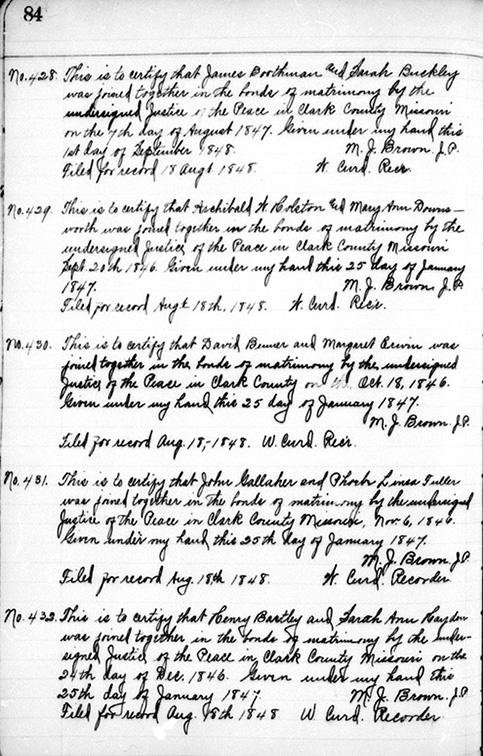 84
No. 428. This is to certify that James Boothman and Sarah Buckley
was joined together in the bonds of matrimony by the
undersigned Justice of the Peace in Clark County Missouri
on the 7th day of August 1847. Given under my hand this
1st day of September 1848. M. J. Brown J.P.
Filed for record 18 Augt 1848. W. Curd. Recr.
No. 429. This is to certify that Archibald W. Colston and Mary Ann Downs-
worth was joined together in the bonds of matrimony by the
undersigned Justice of the Peace in Clark County Missouri
Sept. 20th 1846. Given under my hand this 25 day of January
1847. M. J. Brown, J.P.
Filed for record Augt 18th, 1848. W. Curd, Rec'r.
No. 430. This is to certify that David and Margaret Erwin was
joined together in the bonds of matrimony by the undersigned
Justice of the Peace in Clark County on the Oct. 18, 1846.
Given under my hand this 25 day of January 1847.
M. J. Brown. J.P.
Filed for record Aug. 18,- 1848. W. Curd. Rec'r.
No. 431. This is to certify that John Gallaher and Phoeb Linsa Fuller
was joined together in the bonds of matrimony by the undersigned
Justice of the Peace in Clark County Missouri, Nov. 6, 1846.
Given under my hand this 25th day of January 1847.
M. J. Brown. J.P.
Filed for record Aug. 18th 1848. W. Curd. Recorder.
No. 432. This is to certify that Henry Bartley and Sarah Ann Hayden
was joined together in the bonds of matrimony by the under-
signed Justice of the Peace in Clark County Missouri on the
24th day of Dec. 1846. Given under my hand this
25th day of January 1847. M. J. Brown. J.P.
Filed for record Aug. 18th 1848 W Curd. Recorder.